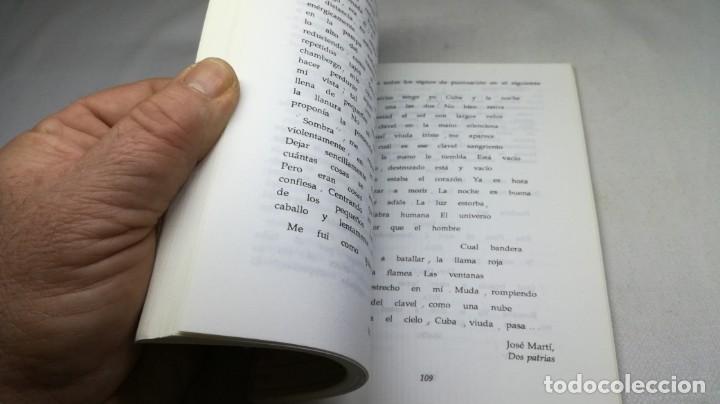 distancia
enérgicamente
en la pampa
lo alto del
reduciendo
repetidos
chambergo, mis
hacer perdurar
mi vista; tal
llena de pequeñ
la llanura No
proponía la
Sombra me
violentamente en
Dejar sencillamente
cuántas cosas se
Pero eran cosas
confiesa. Centrando
de los pequeños
caballo y lentamente
Me fui como
todos los signos de puntuación en el siguiente
patrias tengo yo, Cuba y la noche
una las dos No bien retira
estad el sol con largos velos
clavel en la mano silenciosa
viuda triste me aparece
cuál es ese clavel sangriento
la mano le tiembla Está vacío
destrozado está y vacío
estaba el corazón. Ya es hora
zar a morir. La noche es buena
adiós. La luz estorba,
abra humana El universo
or que el hombre
Cual bandera
a batallar, la llama roja
flamea. Las ventanas
strecho en mí. Muda, rompiendo
del clavel, como una nube
a el cielo, Cuba, viuda, pasa...
José Martí,
Dos patrias
109
todocoleccion
todocoleccion.net